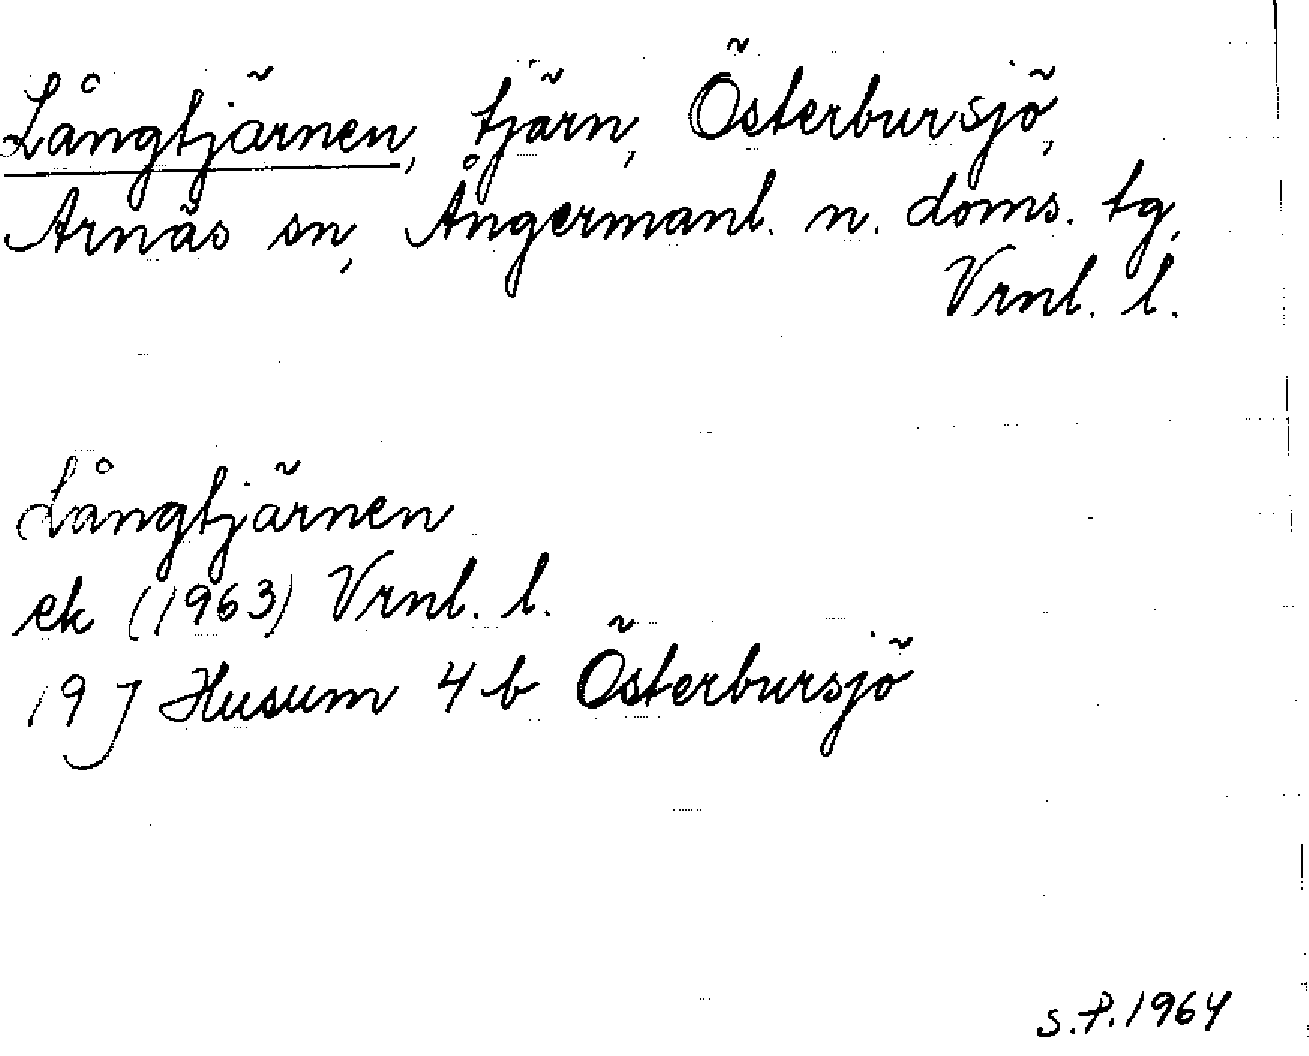 Långtjärnen, tjärn, Österbursjö,
Arnäs sn, Ångermanl. n. doms. tg,
Vrnl. l.
Långtjärnen
ek (1963) Vrnl. l.
19 J Husum 4 b Österbursjö
S.P. 1964